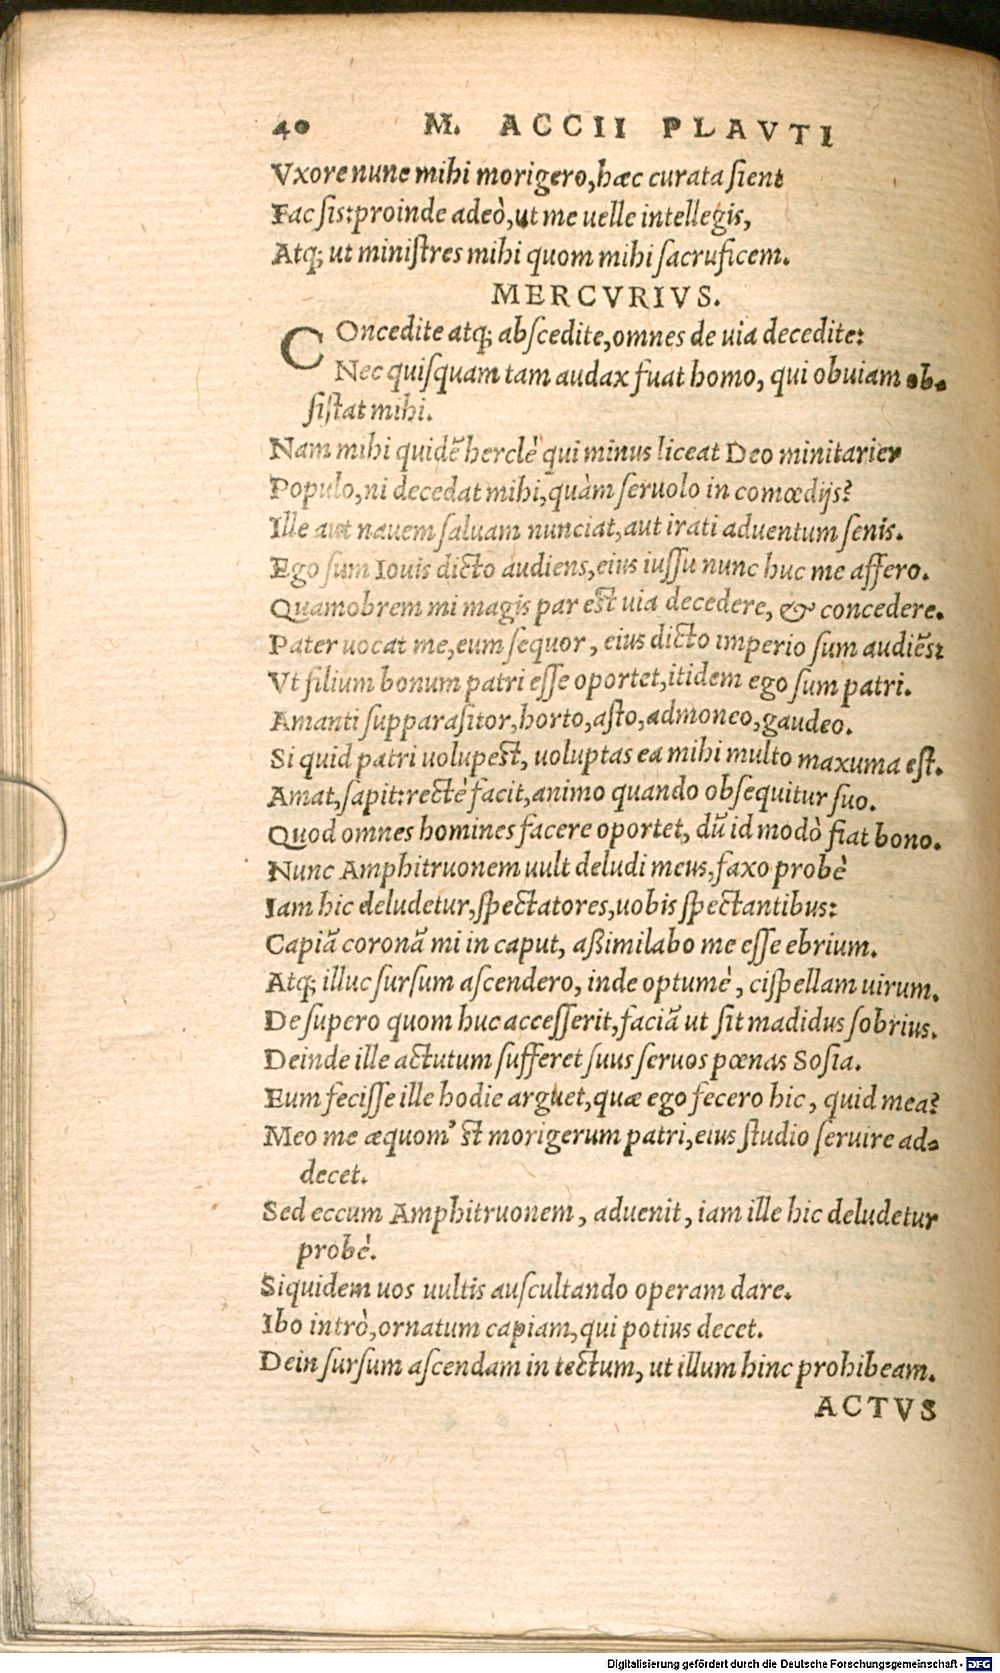 40 M. ACCII PLAVTI
Vxore nunc mihi morigero, hæc curata sient
Fac sis: proinde adeò, ut me uelle intellegis,
Atq; ut ministres mihi quom mihi sacruficem.
MERCVRIVS.
COncedite atq; abscedite, omnes de uia decedite:
Nec quisquam tam audax fuat homo, qui obuiam ob-
sistat mihi.
Nam mihi quidẽ herclè qui minus liceat Deo minitarier
Populo, ni decedat mihi, quàm seruolo in comœdijs?
Ille aut nauem saluam nunciat, aut irati aduentum senis.
Ego sum Iouis dicto audiens, eius iussu nunc huc me affero.
Quamobrem mi magis par est uia decedere, & concedere.
Pater uocat me, eum sequor, eius dicto imperio sum audiẽs:
Vt filium bonum patri esse oportet, itidem ego sum patri.
Amanti supparasitor, horto, asto, admoneo, gaudeo.
Si quid patri uolupest, uoluptas ea mihi multo maxuma est.
Amat, sapit: rectè facit, animo quando obsequitur suo.
Quod omnes homines facere oportet, dũ id modò fiat bono.
Nunc Amphitruonem uult deludi meus, faxo probè
Iam hic deludetur, spectatores, uobis spectantibus:
Capiã coronã mi in caput, aßimilabo me esse ebrium.
Atq; illuc sursum ascendero, inde optumè, cispellam uirum.
De supero quom huc accesserit, faciã ut sit madidus sobrius.
Deinde ille actutum sufferet suus seruos pœnas Sosia.
Eum fecisse ille hodie arguet, quæ ego fecero hic, quid mea?
Meo me æquom' st morigerum patri, eius studio seruire ad-
decet.
Sed eccum Amphitruonem, aduenit, iam ille hic deludetur
probè.
Siquidem uos uultis auscultando operam dare.
Ibo intrò, ornatum capiam, qui potius decet.
Dein sursum ascendam in tectum, ut illum hinc prohibeam.
ACTVS
Digitalisierung gefördert durch die Deutsche Forschungsgemeinschaft - DFG